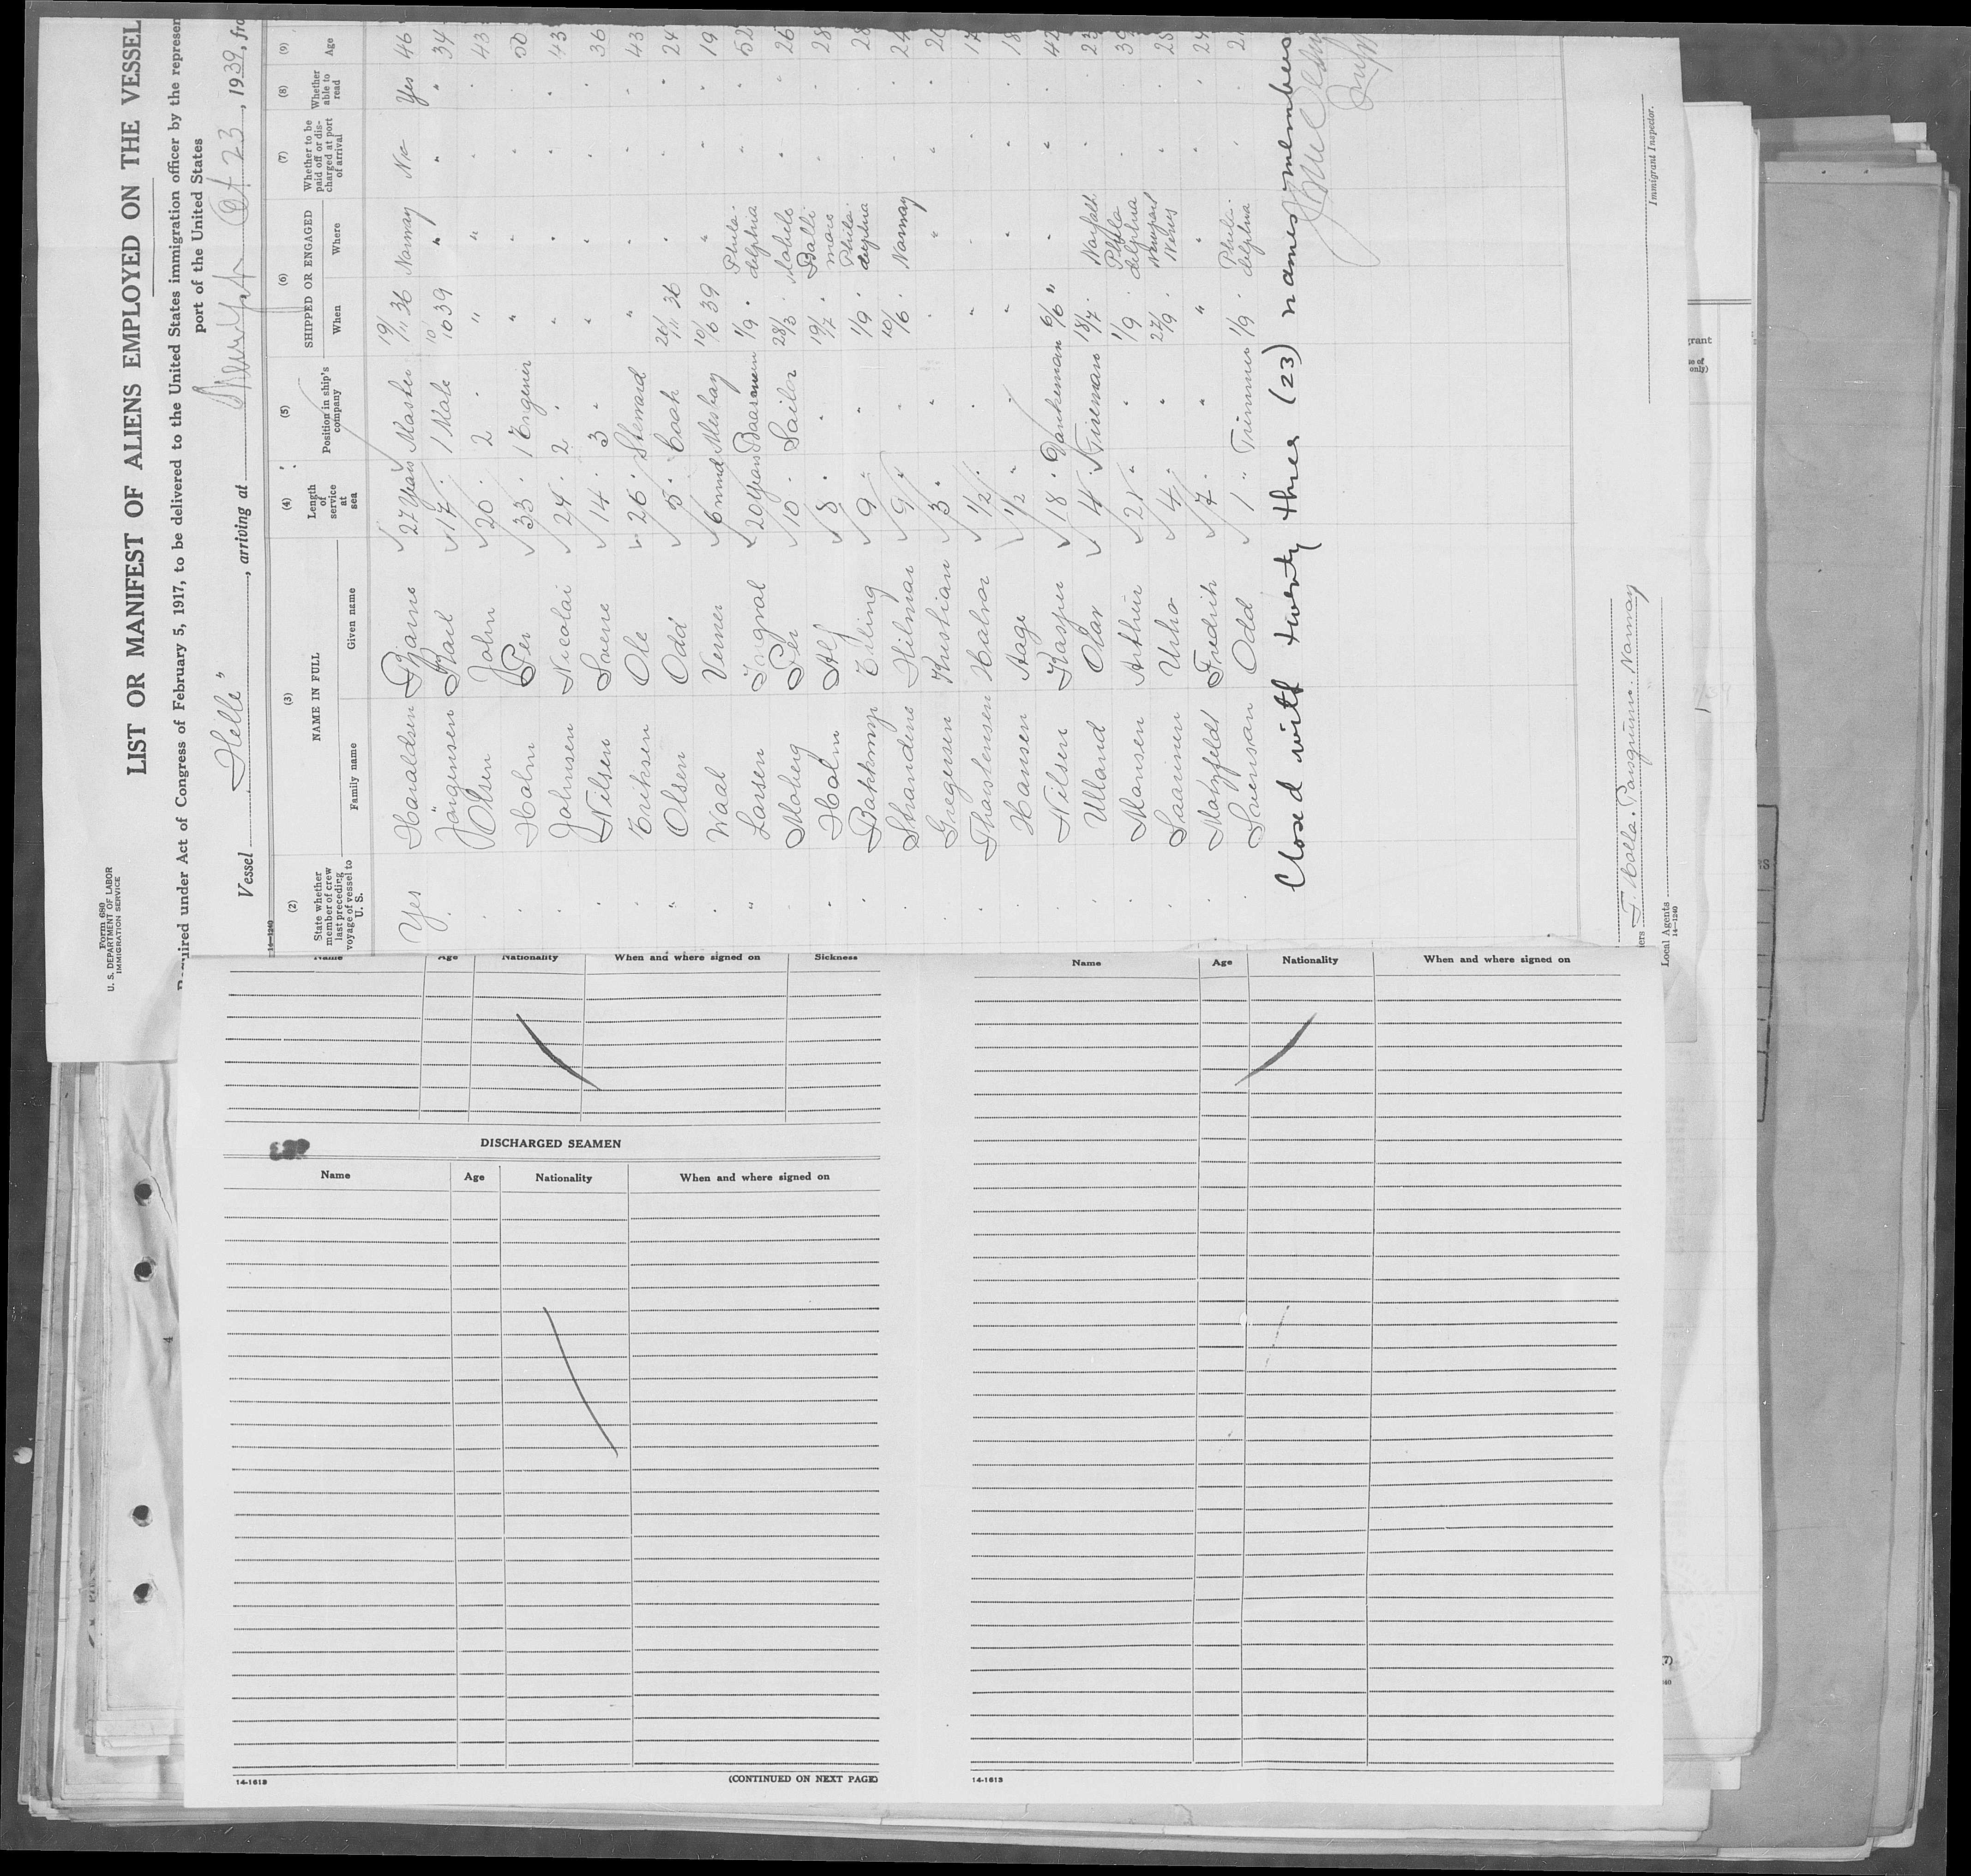 Form 680
U. S. DEPARTMENT OF LABOR
IMMIGRATION SERVICE
LIST OR MANIFEST OF ALIENS EMPLOYED ON THE VESSEL
Required under Act of Congress of February 5, 1917, to be delivered to the United States immigration officer by the represen
port of the United States
Vessel "Helle", arriving at Oct 23, 1939, fro
14-1240
(2) (3) (4) (5) (6) (7) (8) (9)
State whether member of crew last preceding voyage of vessel to U. S.
NAME IN FULL
Family name Given name
Length of service at sea
Position in ship's company
SHIPPED OR ENGAGED
When Where
Whether to be paid off or discharged at port of arrival
Whether able to read
Age
Yes Haraldsen Bjarne 27 years Master 19/11 36 Norway No Yes 46
" Jörgensen Karl 17 " 1 Mate 10/10 39 " " " 34
" Olsen John 20 " 2 " " " " " 43
" Holm Per 33 " 1 Engener " " " " 50
" Johnsen Nicolai 24 " 2 " " " " " 43
" Nilsen Sverre 14 " 3 " " " " " 36
" Eriksen Ole 26 " Steward " " " " 43
" Olsen Odd 5 " Cook 26/11 36 " " " 24
" Waal Verner 6 mnd Messboy 10/6 39 " " " 19
" Larsen Ingval 20 years Baasmen 1/9 " Philadelphia " " 52
" Moberg Per 10 " Sailor 28/3 " Mobele " " 26
" Holm Alf 8 " " 19/7 " Baltimore " " 28
" Bakkemyr Erling 9 " " 1/9 " Philadelphia " " 28
" Strandene Hilmar 9 " " 10/6 " Norway " " 24
" Gregersen Kristian 3 " " " " " " 20
" Thorstensen Halvor 1/2 " " " " " " 17
" Hansen Aage 1/2 " " " " " " 18
" Nilsen Kasper 18 " Dankeman 6/6 " " " " 42
" Ulland Olav 4 " Fireman 18/7 " Norfolk " " 23
" Monsen Arthur 21 " " 1/9 " Philadelphia " " 39
" Saarinen Urho 4 " " 27/9 " Newport News " " 25
" Motzfeldt Fredrik 7 " " " " " " 24
" Svensson Odd 1 " Trimmer 1/9 " Philadelphia " " 21
Closed with twenty three (23) names members
Immigrant Inspector.
Porsgrunn. Norway
Local Agents
14-1240
Name Age Nationality When and where signed on Sickness
DISCHARGED SEAMEN
Name Age Nationality When and where signed on
14-1613
(CONTINUED ON NEXT PAGE)
Name Age Nationality When and where signed on
14-1613